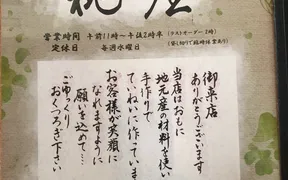 営業時間 午前11時〜午後2時半(ラストオーダー2時)
定休日 毎週水曜日(貸し切りで臨時休業あり)
御来店
ありがとうございます
当店はおもに
地元産の材料を使い
手作りで
ていねいに作っています
お客様が笑顔に
なれますように
願いを込めて…
ごゆっくり
おくつろぎ下さい